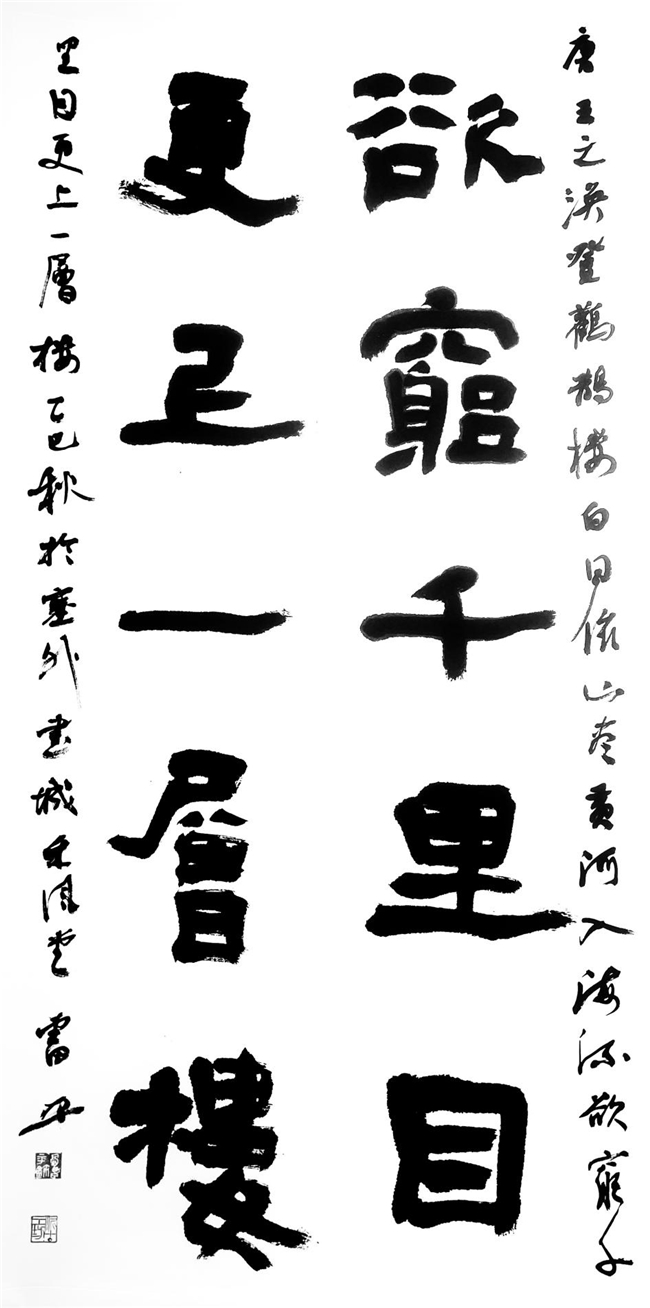 唐王之渙登鸛鵲樓白日依山盡黃河入海流欲窮千
欲窮千里目
更上一層樓
里目更上一層樓乙巳秋於塞外書城風堂雷